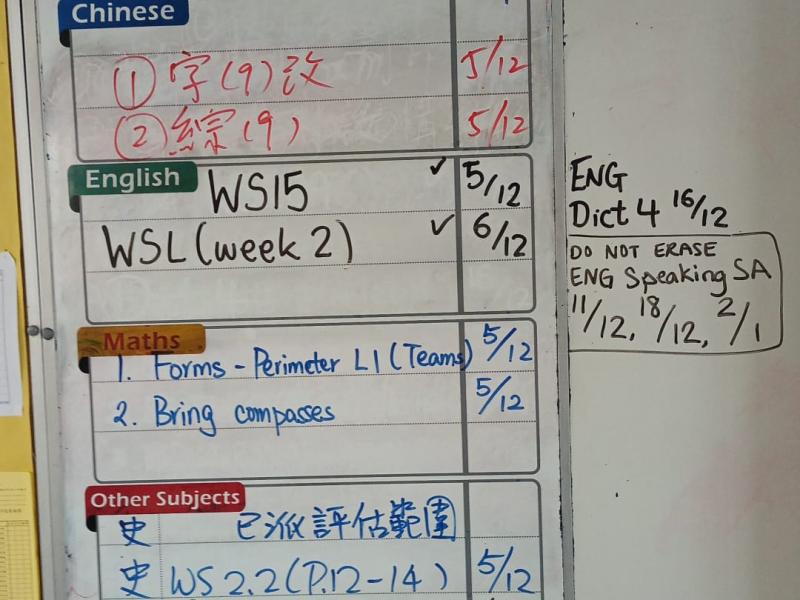 Chinese
① 字(9)改 5/12
② 綜(9) 5/12
English
WS15 ✓ 5/12
WSL (week 2) ✓ 6/12
Maths
1. Forms - Perimeter L1 (Teams) 5/12
2. Bring compasses 5/12
Other Subjects
史 已派評估範圍
史 WS 2.2 (P.12-14) 5/12
ENG
Dict 4 16/12
DO NOT ERASE
ENG Speaking SA
11/12, 18/12, 2/1